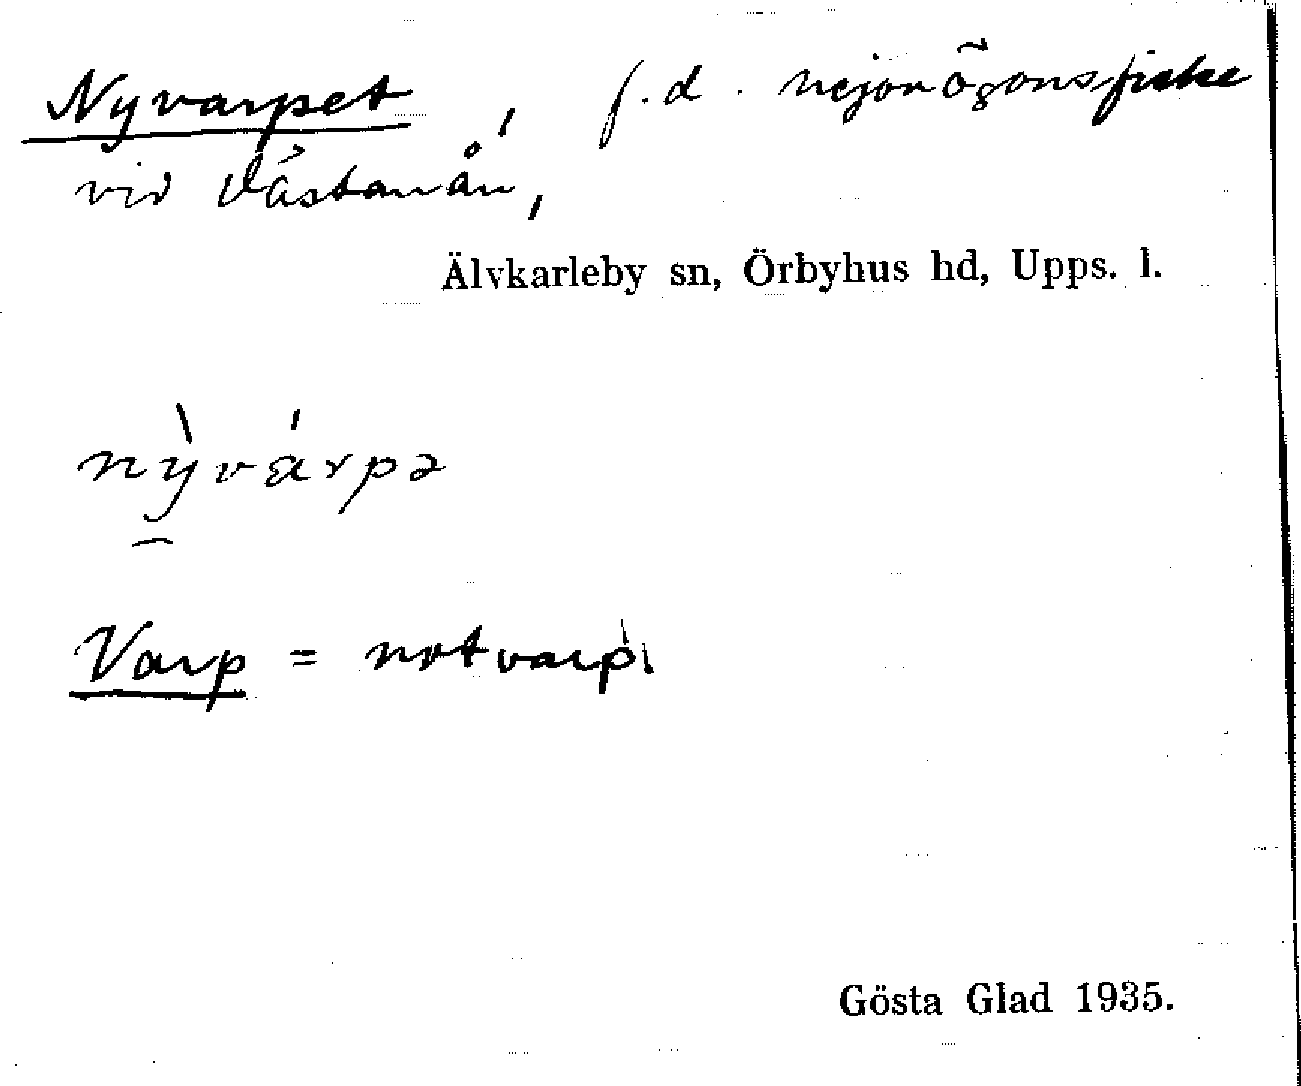 Nyvarpet, f.d. nejonögonsfiske
vid Västanån,
Älvkarleby sn, Örbyhus hd, Upps. l.
nỳvárpə
Varp = notvarp.
Gösta Glad 1935.